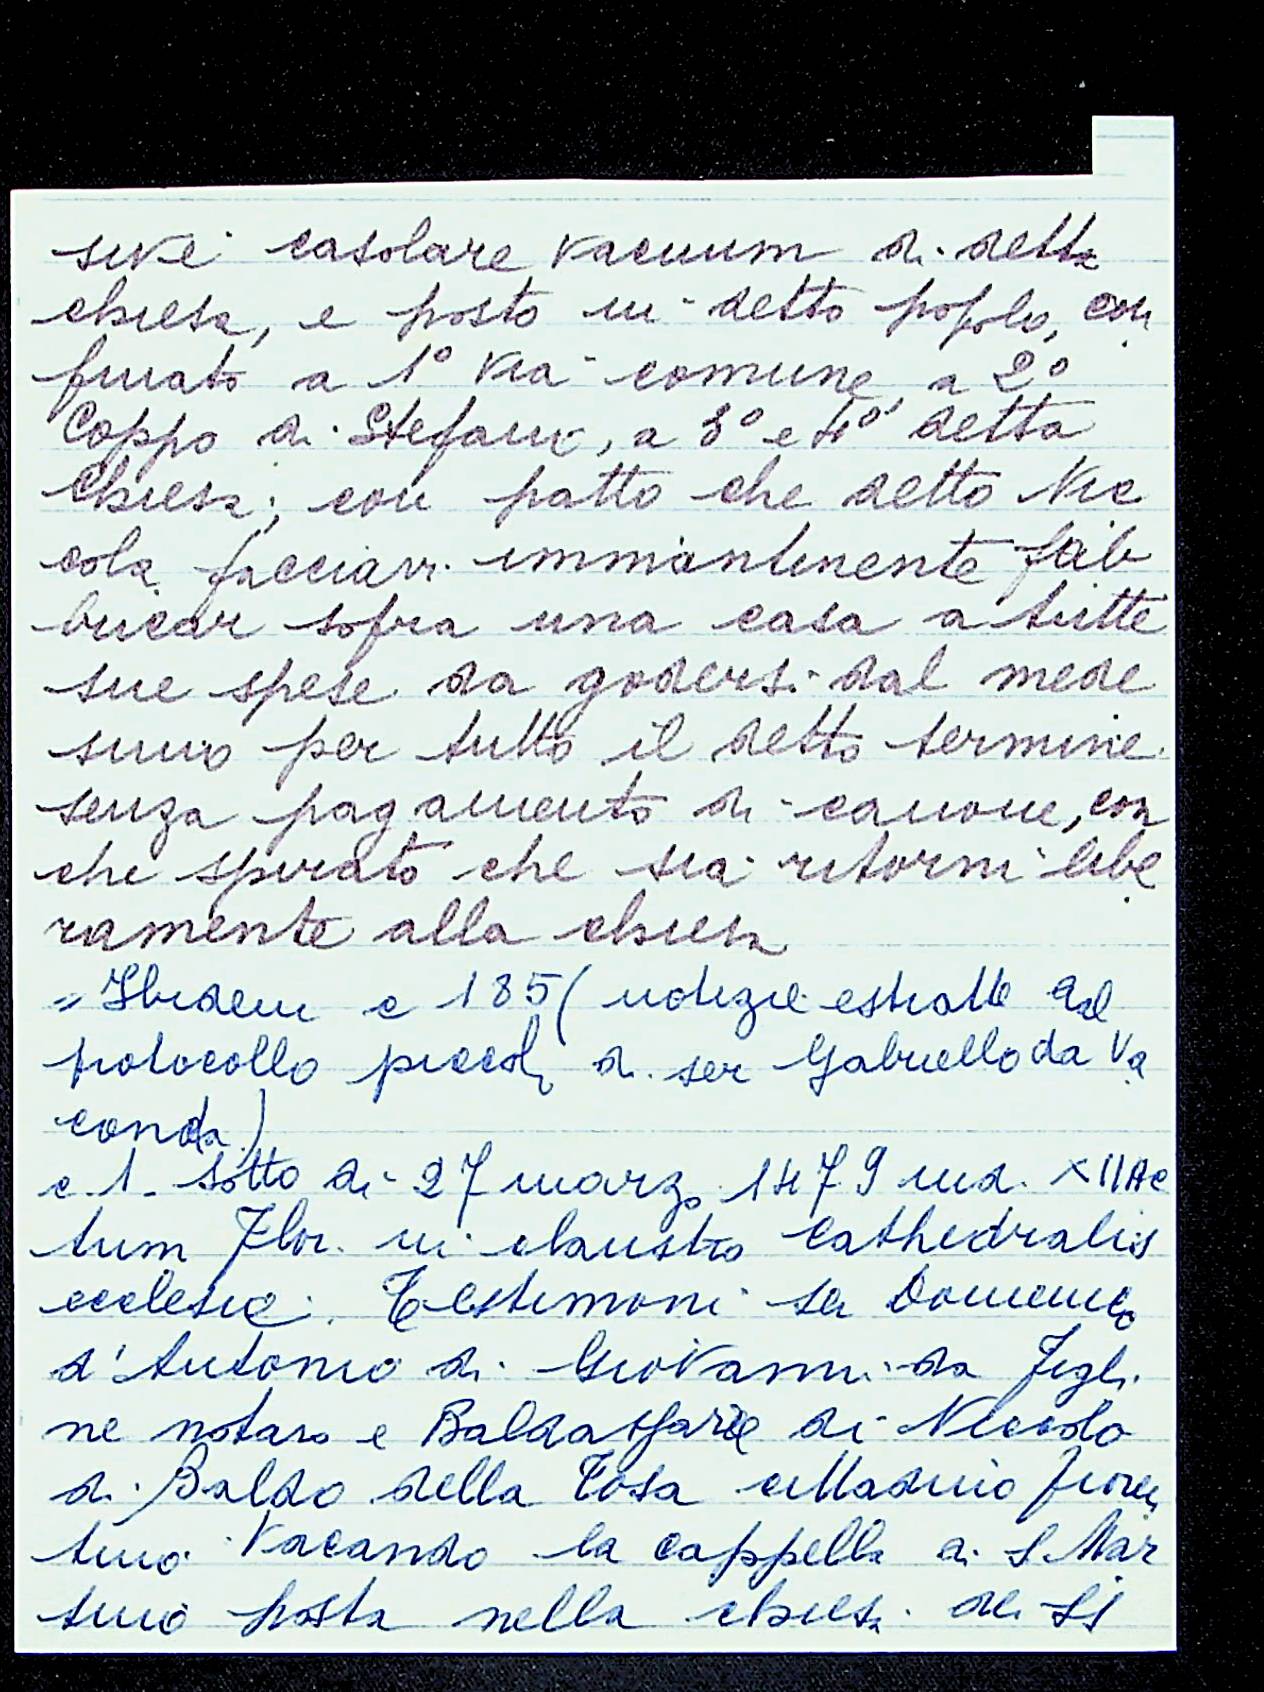 sive casolare vacuum di detta
chiesa, e posto in detto popolo, con
finato a 1° via comune, a 2°
Coppo di Stefano, a 3° e 4° detta
chiesa; con patto che detto Nic
cola facciavi immantinente fab
bricar sopra una casa a tutte
sue spese da godersi dal mede
simo per tutto il detto termine
senza pagamento di canone, con
che spirato che sia ritorni libe
ramente alla chiesa
= Ibidem c 185 (notizie estratte dal
protocollo piccolo di ser Gabriello da Va
conda)
c. 1. sotto di 27 marzo 1479 ind. XII Ac
tum Flor. in claustro Cathedralis
ecclesie. Testimoni ser Domenico
d'Antonio di Giovanni da Figli
ne notaro e Baldassarre di Niccolo
di Baldo della Tosa cittadino fioren
tino. Vacando la cappella di S. Mar
tino posta nella chiesa di SS